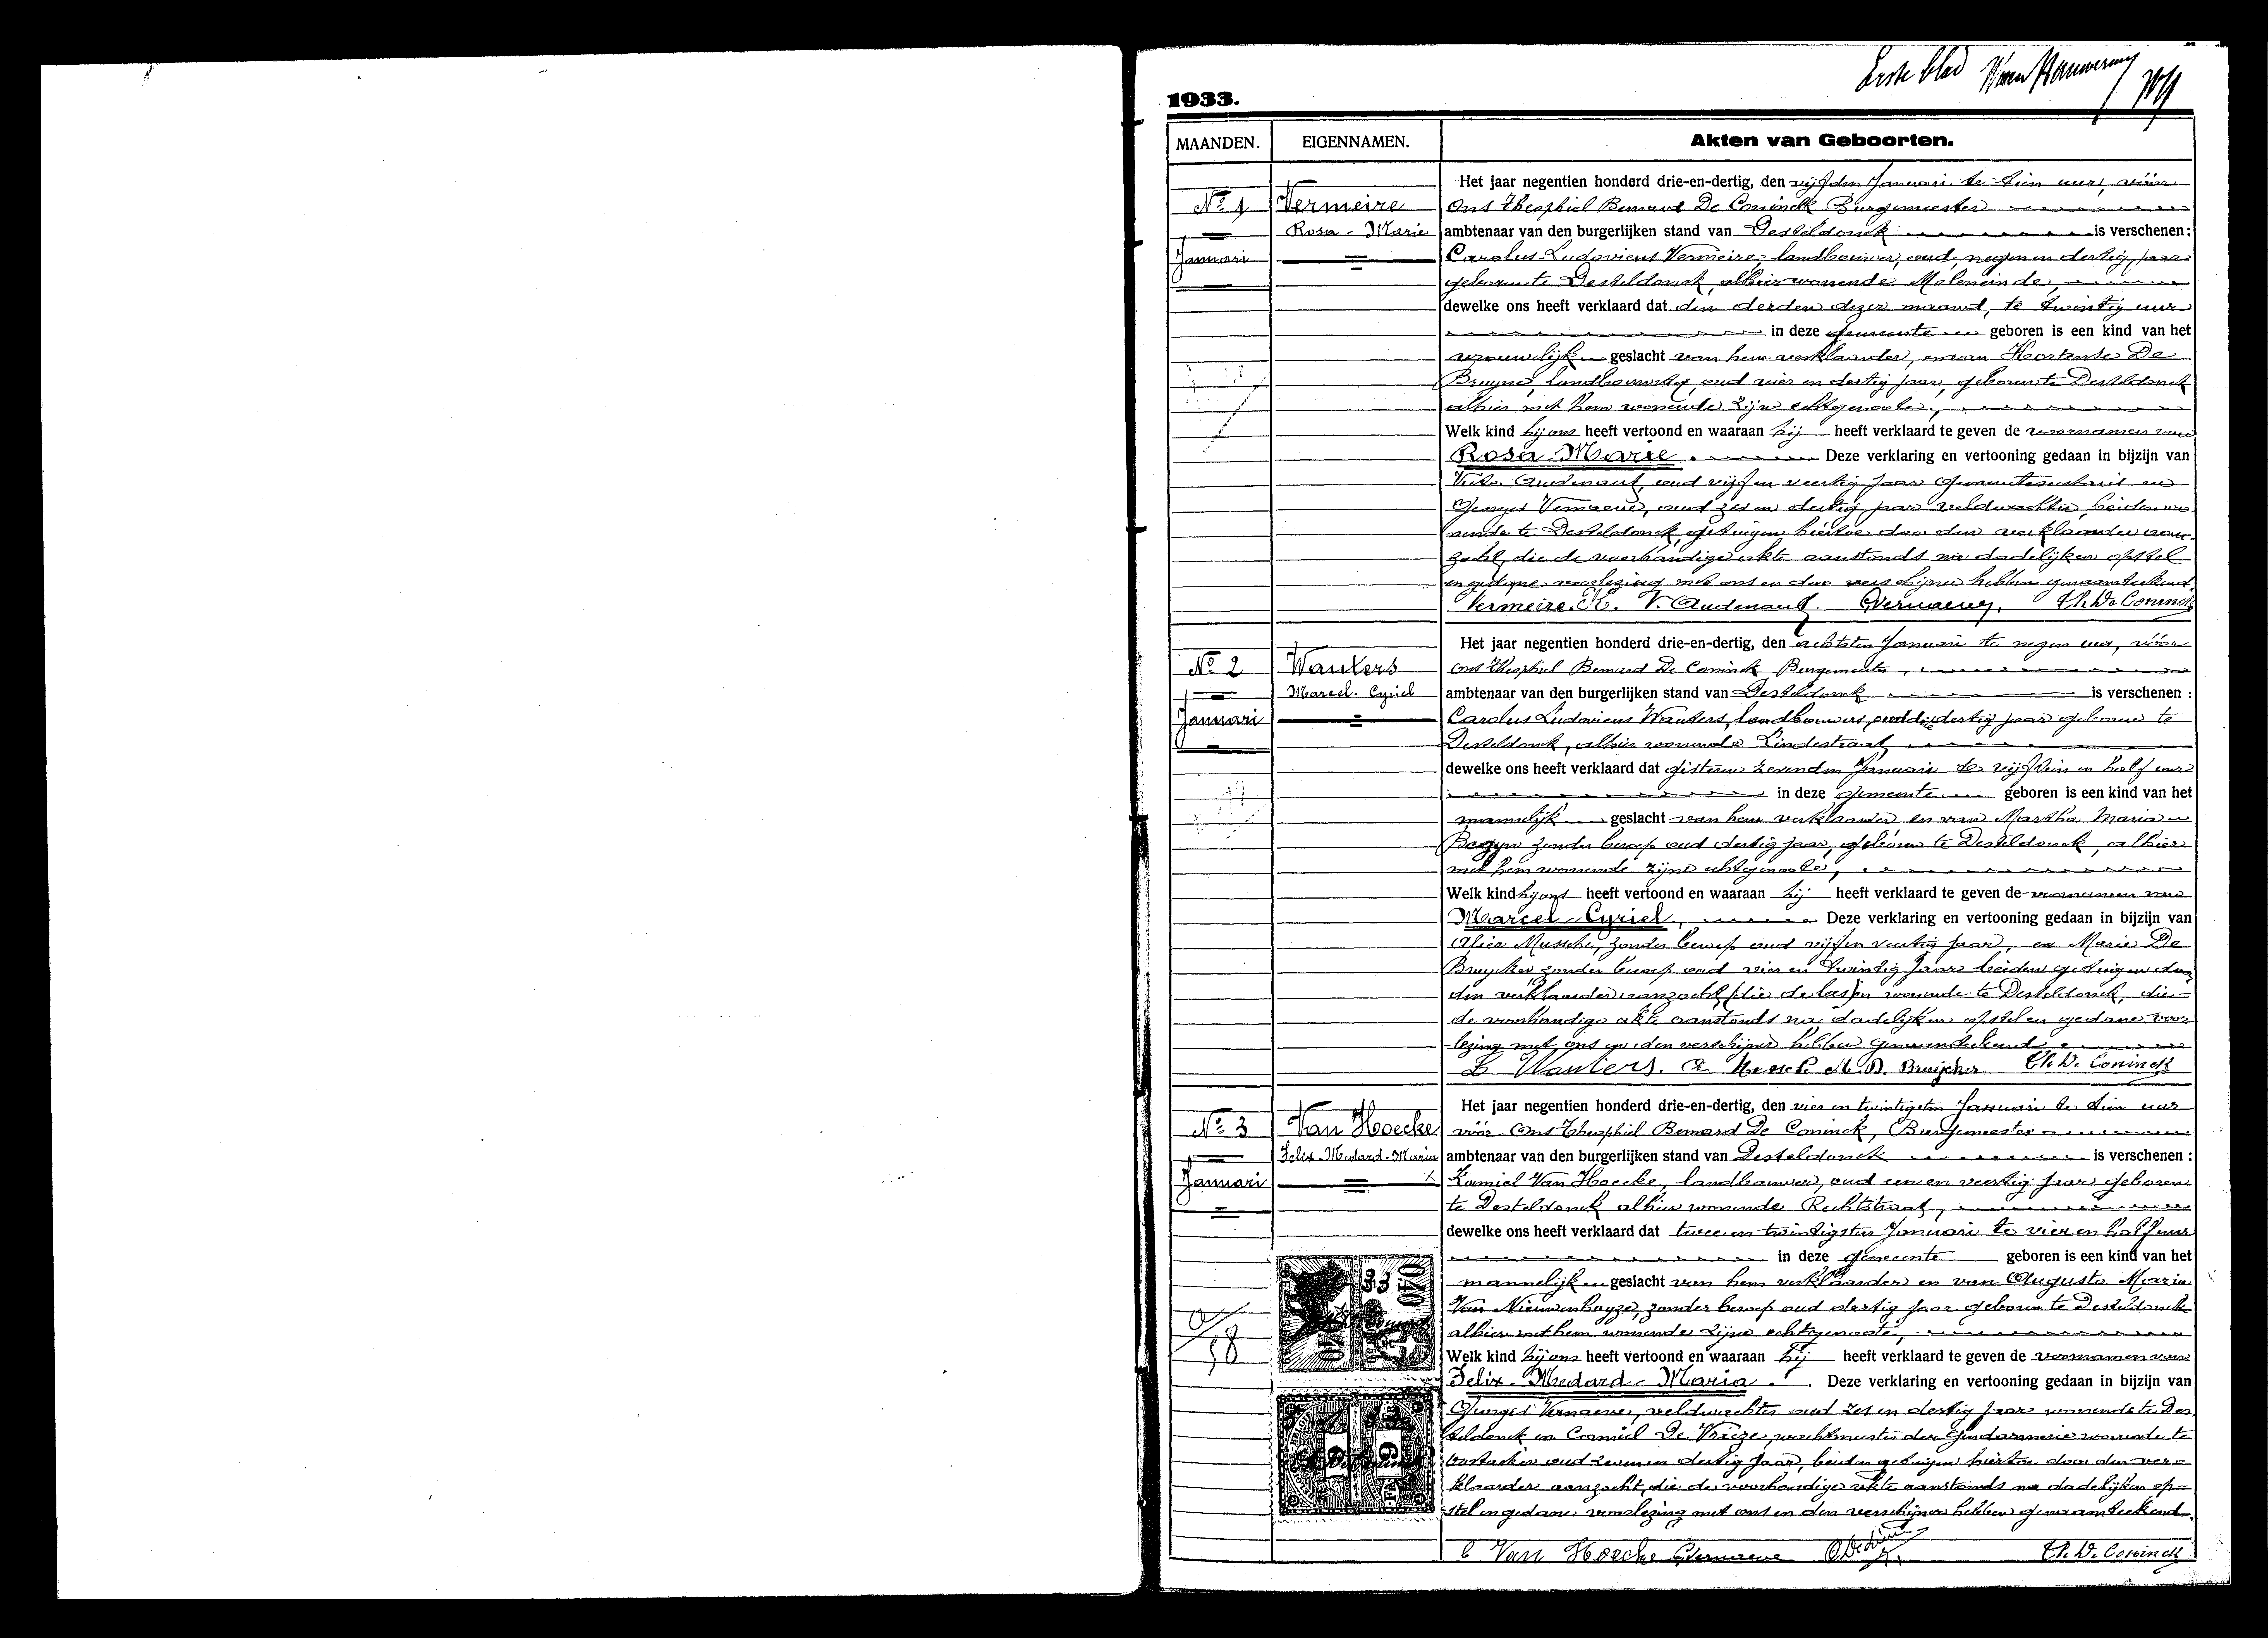 Erste blad
1933.
MAANDEN. EIGENNAMEN. Akten van Geboorten.
Nº 1
Januari
Vermeire
Rosa - Marie
Het jaar negentien honderd drie-en-dertig, den vijfden Januari te tien uur, vóór
Ons Theophiel Bernard De Coninck Burgemeester
ambtenaar van den burgerlijken stand van Desteldonck is verschenen :
Carolus-Ludovicus Vermeire, landbouwer, oud negen en dertig jaar
geboren te Desteldonck, alhier wonende Moleneinde,
dewelke ons heeft verklaard dat den derden dezer maand, te twintig uur
in deze gemeente geboren is een kind van het
vrouwelijk geslacht van hem verklaarder, en van Hortense De
Bruyne, landbouwster, oud vier en dertig jaar, geboren te Desteldonck
alhier met hem wonende zijne echtgenoote,
Welk kind hij ons heeft vertoond en waaraan hij heeft verklaard te geven de voornamen van
Rosa Marie. Deze verklaring en vertooning gedaan in bijzijn van
Audenaert, oud vijf en veertig jaar gemeentesecretaris en
Georges Vernaeve, oud zes en dertig jaar veldwachter, beiden wo-
nende te Desteldonck, getuigen hiertoe door den verklaarder aan-
zocht, die de voorhandige akte aanstonds na dadelijken opstel
en gedane voorlezing met ons en den verschijner hebben genaamteekend.
Vermeire. K. V. Audenaert. G Vernaeve. Th. De Coninck
Nº 2
Januari
Wauters
Marcel. Cyriel
Het jaar negentien honderd drie-en-dertig, den achtsten Januari te negen uur, vóór
Ons Theophiel Bernard De Coninck Burgemeester,
ambtenaar van den burgerlijken stand van Desteldonck is verschenen :
Carolus Ludovicus Wauters, landbouwer, oud drie dertig jaar geboren te
Desteldonck, alhier wonende Lindestraat,
dewelke ons heeft verklaard dat gisteren zevenden Januari te vijftien en half uur
in deze gemeente geboren is een kind van het
mannelijk geslacht van hem verklaarder en van Martha Maria
Begyn zonder beroep oud dertig jaar, geboren te Desteldonck, alhier
met hem wonende zijne echtgenoote,
Welk kind hij ons heeft vertoond en waaraan hij heeft verklaard te geven de voornamen van
Marcel - Cyriel, Deze verklaring en vertooning gedaan in bijzijn van
Alice Mussche, zonder beroep oud vijf en veertig jaar, en Marie De
Bruycker zonder beroep oud vier en twintig jaar beiden getuigen door
den verklaarder aanzocht, wonende te Desteldonck, die
de voorhandige akte aanstonds na dadelijken opstel en gedane voor
lezing met ons en den verschijner hebben genaamteekend.
Wauters. A Mussche M. D. Bruijcker Th De Coninck
Nº 3
Januari
Van Hoecke
Felix-Medard-Maria
Het jaar negentien honderd drie-en-dertig, den vier en twintigsten Januari te tien uur
vóór Ons Theophiel Bernard De Coninck, Burgemeester
ambtenaar van den burgerlijken stand van Desteldonck is verschenen :
Kamiel Van Hoecke, landbouwer, oud een en veertig jaar geboren
te Desteldonck alhier wonende Rechtstraat,
dewelke ons heeft verklaard dat twee en twintigsten Januari te vier en half uur
in deze gemeente geboren is een kind van het
mannelijk geslacht van hem verklaarder en van Augusta Maria
Van Nieuwenhuyze, zonder beroep oud dertig jaar geboren te Desteldonck
alhier met hem wonende zijne echtgenoote,
Welk kind hij ons heeft vertoond en waaraan hij heeft verklaard te geven de voornamen van
Felix - Medard - Maria. Deze verklaring en vertooning gedaan in bijzijn van
Georges Vernaeve, veldwachter oud zes en dertig jaar wonende te Des
teldonck en Camiel De Vrieze, wachtmeester der Gendarmerie wonende te
Oostacker oud zeven en dertig jaar, beiden getuigen hiertoe door den ver-
klaarder aanzocht, die de voorhandige akte aanstonds na dadelijken op-
stel en gedane voorlezing met ons en den verschijner hebben genaamteekend.
C Van Hoecke G Vernaeve Th. De Coninck